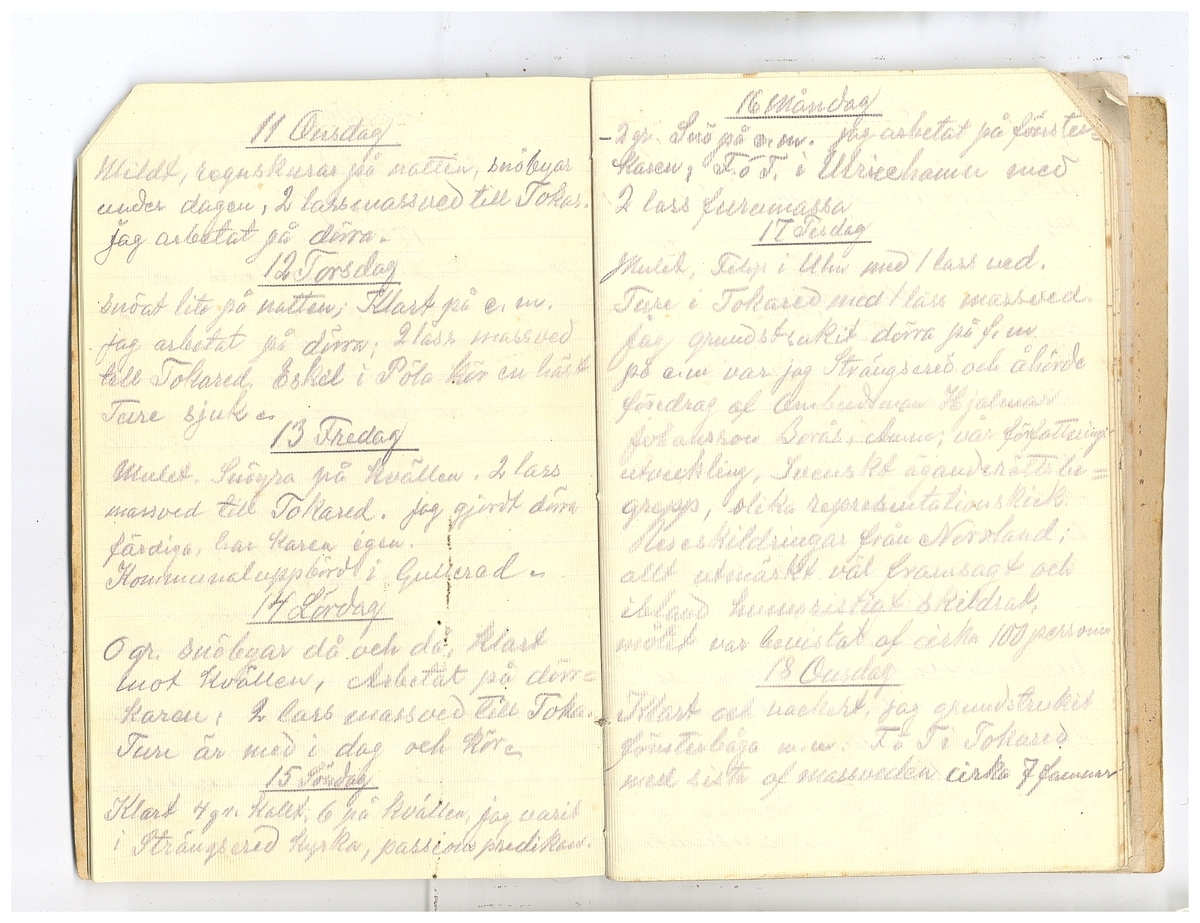 11 Onsdag
Mildt, regnskurar på natten, snöbyar
under dagen, 2 lass massved till Tokar.
jag arbetat på dörra.
12 Torsdag
snöat lite på natten; Klart på e.m.
jag arbetat på dörra; 2 lass massved
till Tokared. Eskil i Pöla kör en häst
Ture sjuk.
13 Fredag
Mulet. Snöyra på kvällen. 2 lass
massved till Tokared. jag gjordt dörra
färdiga, har karen igen.
Kommunaluppbörd i Gullered.
14 Lördag
0 gr. snöbyar då och då, klart
mot kvällen, Arbetat på dörr=
karen; 2 lass massved till Toka.
Ture är med i dag och kör.
15 Söndag
Klart 4 gr. kallt, 6 på kvällen, jag varit
i Strängsered kyrka, passions predikan.
16 Måndag
-2 gr. Snö på e.m. jag arbetat på fönster=
karen; F. o T. i Ulricehamn med
2 lass furumassa
17 Tisdag
Mulet, Felix i Uhn med 1 lass ved.
Ture i Tokared med 1 lass massved.
jag grundstrukit dörra på f.m
på e.m var jag Strängsered och åhörde
föredrag af Ombudsman Hjalmar
Johansson Borås, Ämne; vår författnings
utveckling, Svenskt äganderättsbe=
grepp, olika representationskick.
Reseskildringar från Norrland;
allt utmärkt väl framsagt och
ibland humoristigt skildrat,
mötet var bevistat af cirka 100 person
18 Onsdag
Klart och vackert, jag grundstrukit
fönsterbåga m.m. F o T i Tokared
med sista af massveden cirka 7 famnar